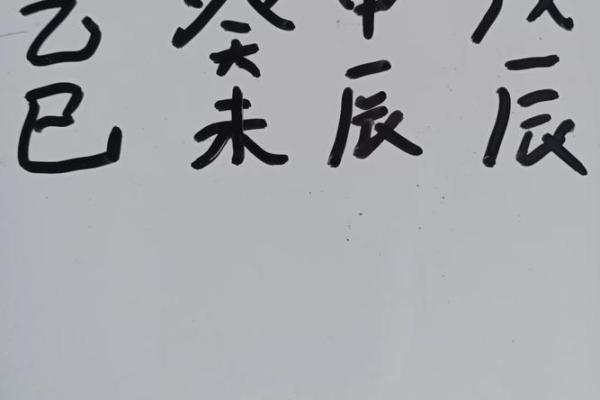 乙 癸 甲 戊
巳 未 辰 辰